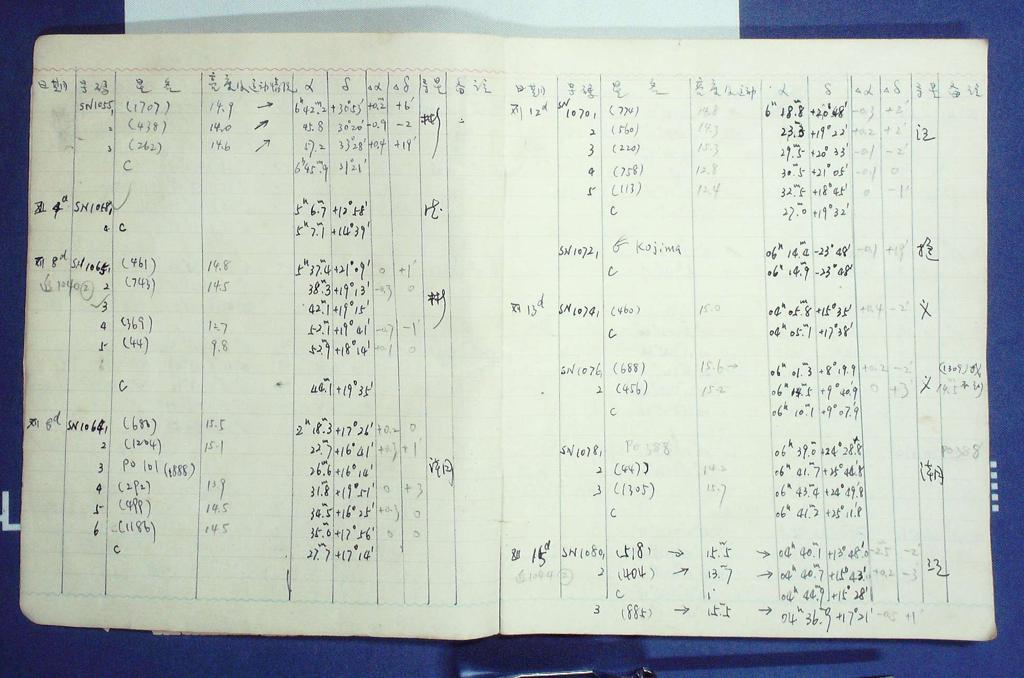 日期 号码 星名 亮度及运动情况 α δ Δα Δδ 备注
SN1055, (1707) 14.9 → 6ʰ42.ᵐ2 +30°53' +0.2 +6'
2 (438) 14.0 ↗ 45.8 30°20' -0.9 -2
3 (262) 14.6 ↗ 57.2 33°28' +0.4 +19'
C 6ʰ45.ᵐ4 31°21'
4ᵈ SN1058,
5ʰ 6.ᵐ7 +12°58'
C 5ʰ 7.ᵐ1 +14°39'
8ᵈ SN1065, (461) 14.8 5ʰ37.ᵐ4 +21°09' 0 +1'
2 (743) 14.5 38.ᵐ3 +19°13' -0.3 0
3 42.ᵐ1 +19°15'
4 (369) 12.7 52.ᵐ1 +19°41' -1'
5 (44) 9.8 52.ᵐ9 +18°14' 0
C 44.ᵐ1 +19°35'
8ᵈ SN1064, (680) 15.5 2ʰ18.ᵐ3 +17°26' +0.2 0
2 (1204) 15.1 22.ᵐ7 +16°41' +0.3 +1'
3 PO 101 (1888) 26.ᵐ6 +16°14'
4 (292) 13.9 31.ᵐ8 +19°51' 0 +3
5 (499) 14.5 34.ᵐ5 +16°25' +0.3 0
6 (1186) 14.5 35.ᵐ0 +17°56' 0 0
C 27.ᵐ7 +17°14'
日期 号码 星名 亮度及运动 α δ Δα Δδ 备注
12ᵈ SN1070, (774) 14.8 6ʰ 18.ᵐ8 +20°48' -0.3 +2'
2 (560) 14.3 23.ᵐ5 +19°22' +0.2 +2' 汪
3 (220) 15.3 29.ᵐ5 +20°33' -0.1 -2'
4 (758) 12.8 30.ᵐ5 +21°05' -0.1 0
5 (113) 12.4 32.ᵐ5 +18°45' 0 -1'
C 27.ᵐ0 +19°32'
SN1072, Kojima 06ʰ 14.ᵐ4 -23°48' -0.1 +19'
C 06ʰ 14.ᵐ9 -23°48'
13ᵈ SN1074, (460) 15.0 04ʰ 05.ᵐ8 +15°35' +0.4 -2' 义
C 04ʰ 05.ᵐ1 +17°38'
SN1076, (688) 15.6 → 06ʰ 01.ᵐ3 +8°19.'9 +0.2 -2' (1309)
2 (456) 15.2 06ʰ 14.ᵐ5 +9°40.'9 0 +3' 义 14.5
C 06ʰ 10.ᵐ1 +9°07.'9
SN1078, PO 388 06ʰ 39.ᵐ0 +24°28.'8 PO388
2 (447) 14.2 06ʰ 41.ᵐ7 +25°44.'8
3 (1305) 15.7 06ʰ 43.ᵐ4 +24°49.'8
C 06ʰ 41.ᵐ2 +25°11.'8
15ᵈ SN1080, (518) → 15.ᵐ5 → 04ʰ 40.ᵐ1 +13°48.'0 -2.5 -2'
2 (404) → 13.ᵐ7 → 04ʰ 40.ᵐ7 +15°43.'0 +0.2 -3'
C 04ʰ 44.ᵐ9 +15°28'
3 (885) → 15.ᵐ5 → 04ʰ 36.ᵐ9 +17°21' -0.5 +1'